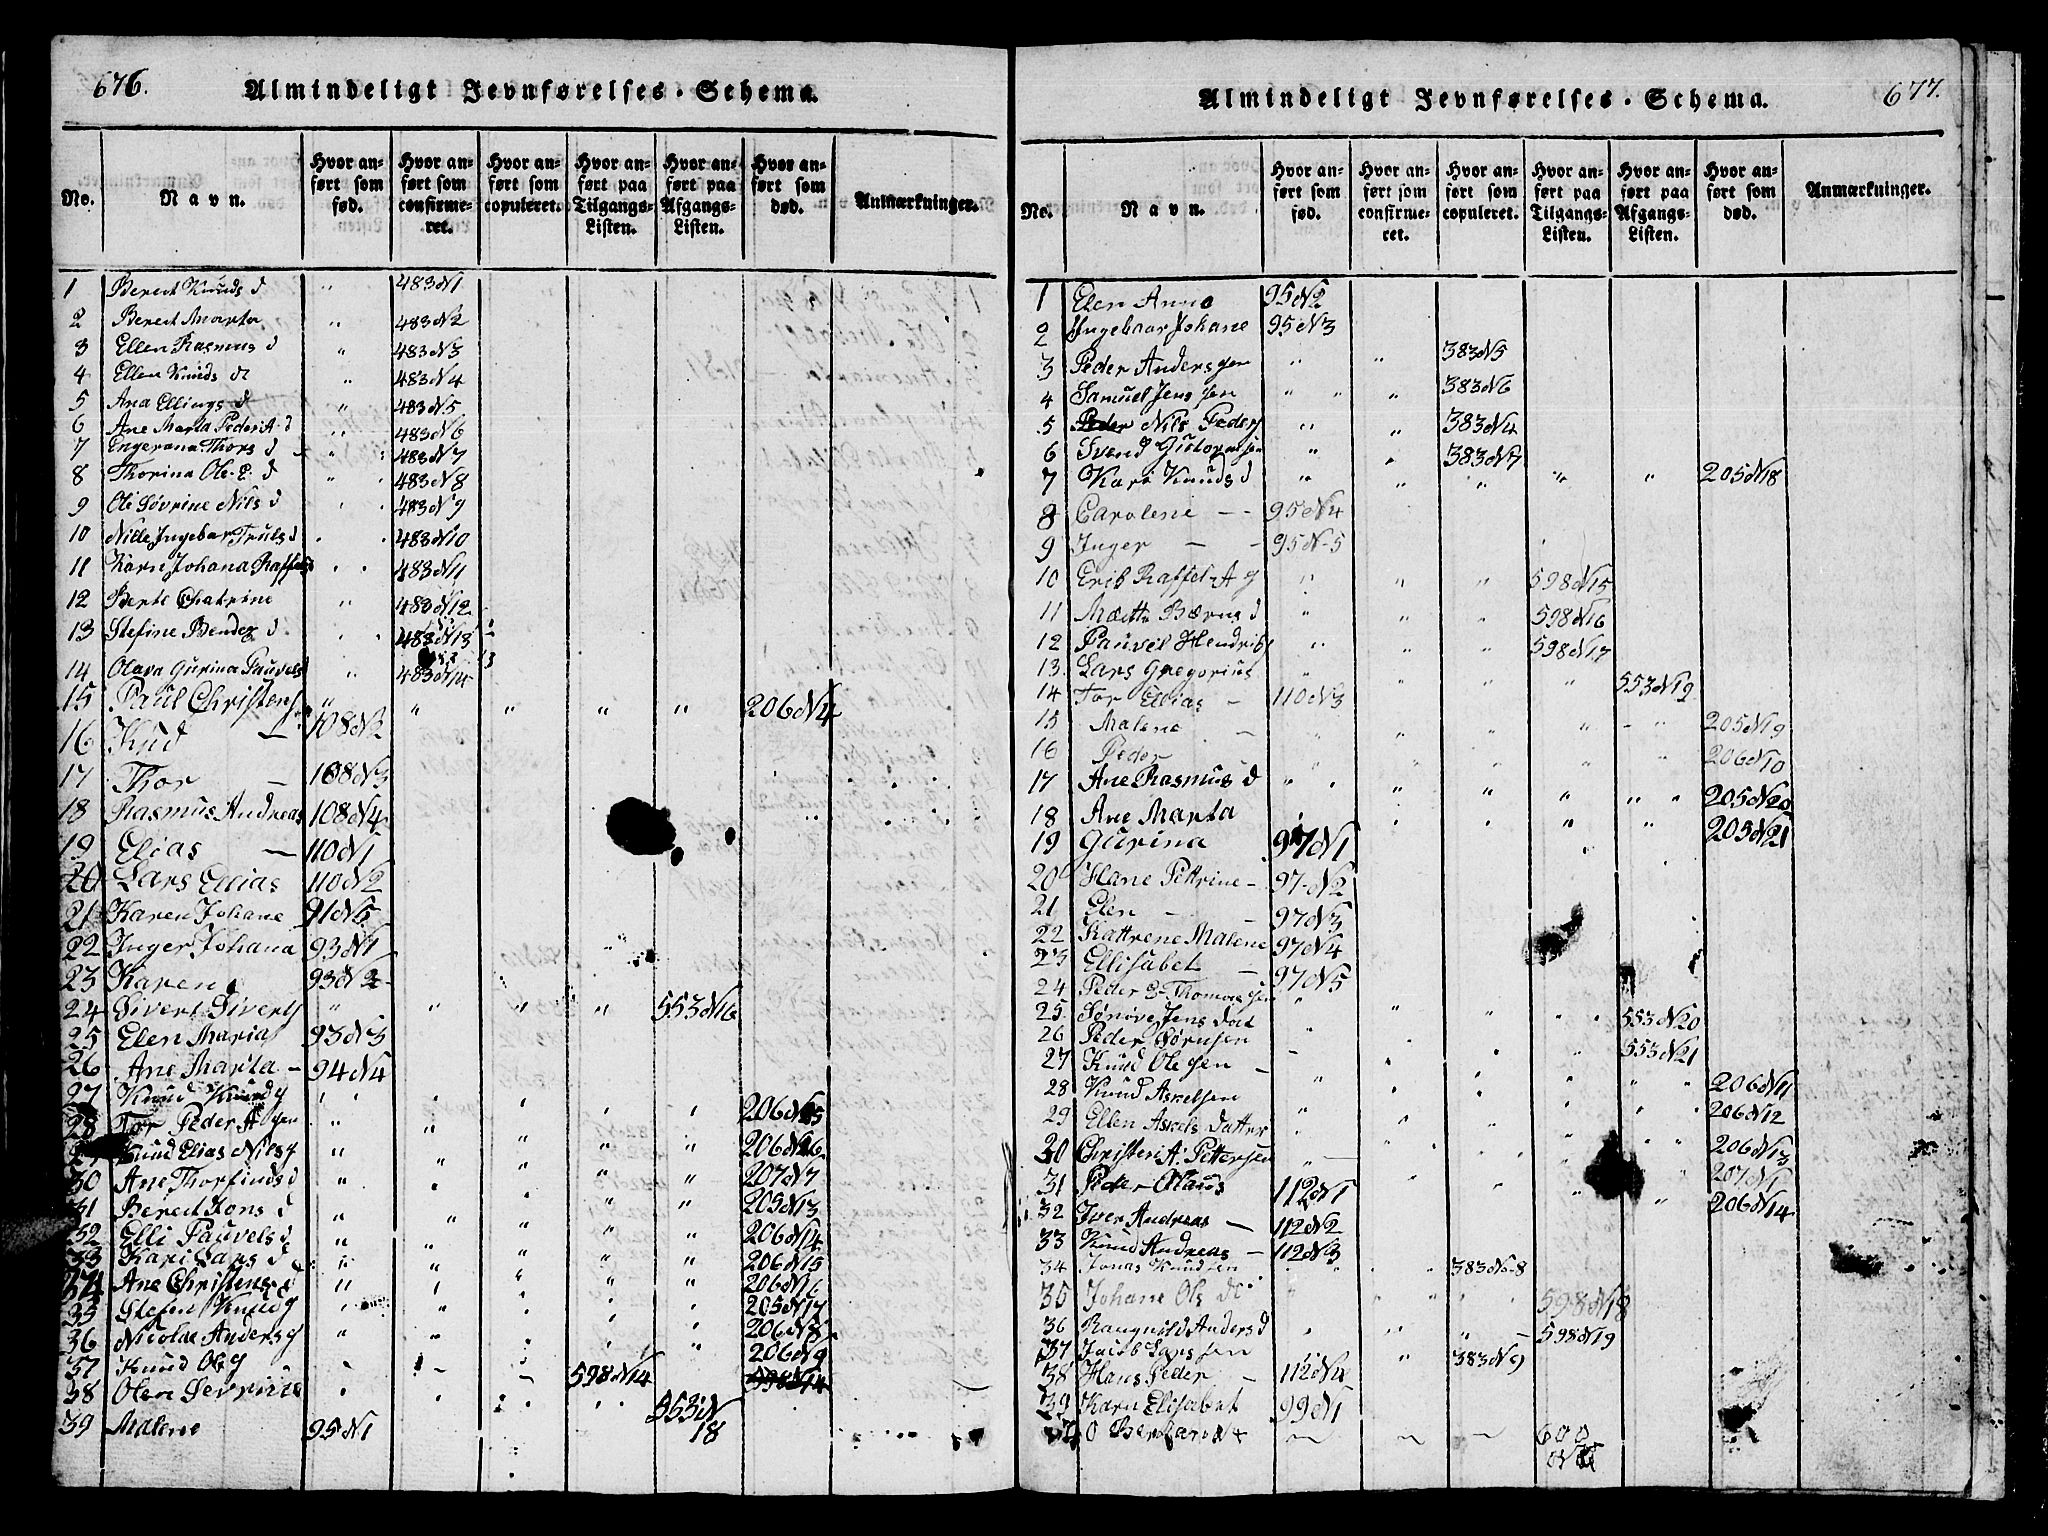 676.
Almindeligt Jevnførelses-Schema.
No.
Navn.
Hvor anført som fød.
Hvor anført som confirmeret.
Hvor anført som copuleret.
Hvor anført paa Tilgangs-Listen.
Hvor anført paa Afgangs-Listen.
Hvor anført som død.
Anmærkninger.
1 Bereth Knuds d " 483 N1
2 Bereth Marta " 483 N2
3 Ellen Rasmus d " 483 N3
4 Ellen Knuds d " 483 N4
5 Ana Ellings d " 483 N5
6 Ane Marta Peder A d " 483 N6
7 Engerana Thors d " 483 N7
8 Thorina Ole E. d " 483 N8
9 Ole Sövrine Nils d " 483 N9
10 Nille Ingebar Truls d " 483 N10
11 Karn Johana Raffels " 483 N11
12 Berte Chatrine " 483 N12
13 Stefine Bender d. " 483 N13
14 Olava Gurina Pauvels d " 483 N14
15 Paul Christens " " " " " 206 N4
16 Knud — 108 N2
17 Thor — 108 N3
18 Rasmus Andreas 108 N4
19 Elias — 110 N1
20 Lars Ellias 110 N2
21 Karen Johane 91 N5
22 Inger Johana 93 N1
23 Karen 93 N2
24 Sivert Siverts " " " " 553 N16
25 Elen Maria 93 N3
26 Ane Marta — 94 N4
27 Knud Knuds " " " " " 206 N25
28 Tor Peder A sen " " " " " 206 N26
Knud Elias Nils " " " " " 207 N7
30 Ane Thorfinds d " " " " " 205 N13
31 Bereth Jons d " " " " " 206 N14
32 Elli Pauvels d " " " " " 206 N15
33 Kari Lars d " " " " " 206 N16
34 Ane Christens d " " " " " 205 N17
35 Stefen Knuds " " " " " 206 N8
36 Nicolai Anders " " " " " 206 N9
37 Knud Ols " " " 598 N14 598 N14
38 Olen Sevrine " " " " 553 N18
39 Malene 95 N1
677.
Almindeligt Jevnførelses-Schema.
No.
Navn.
Hvor anført som fød.
Hvor anført som confirmeret.
Hvor anført som copuleret.
Hvor anført paa Tilgangs-Listen.
Hvor anført paa Afgangs-Listen.
Hvor anført som død.
Anmærkninger.
1 Elen Anna 95 N2
2 Ingebaar Johane 95 N3
3 Peder Anders sen " " 383 N5
4 Samuel Jens sen " " 383 N6
5 Peder Nils Peders " " 383 N4
6 Svend Gutormsen " " 383 N7
7 Kari Knuds d " " " " " 205 N18
8 Carolene — 95 N4
9 Inger — 95 N5
10 Erik Raffel A " " " 598 N15
11 Mætte Bærns d " " " 598 N16
12 Pauvel Hendriks " " " 598 N17
13 Lars Gregorius " " " " 553 N19
14 Tor Ellias — 110 N3
15 Malene " " " " " 205 N19
16 Peder " " " " " 206 N10
17 Ane Rasmus d " " " " " 205 N20
18 Ane Marta " " " " " 205 N21
19 Gurina 97 N1
20 Hane Pettrine — 97 N2
21 Elen — 97 N3
22 Kattrene Malene 97 N4
23 Ellisabet — 97 N5
24 Peder E Thomas sen " " " " 553 N20
25 Sonöve Jens dat " " " " 553 N21
26 Peder Börnsen
27 Knud Ole sen — " " " " " 206 N11
28 Knud Askelsen " " " " " 206 N12
29 Ellen Askels Datter " " " " " 206 N13
30 Christen A: Pettersen " " " " " 207 N1
31 Peder Olaus 112 N1 206 N14
32 Iver Andreas — 112 N2
33 Knud Andreas — 112 N3
34 Jonas Knudsen " " 383 N8
35 Johane Ols d " " " 598 N18
36 Raugnild Anders d " " " 598 N19
37 Jacob Larssen " " 383 N9
38 Hans Peder — 112 N4
39 Karn Elisabet 99 N1
600